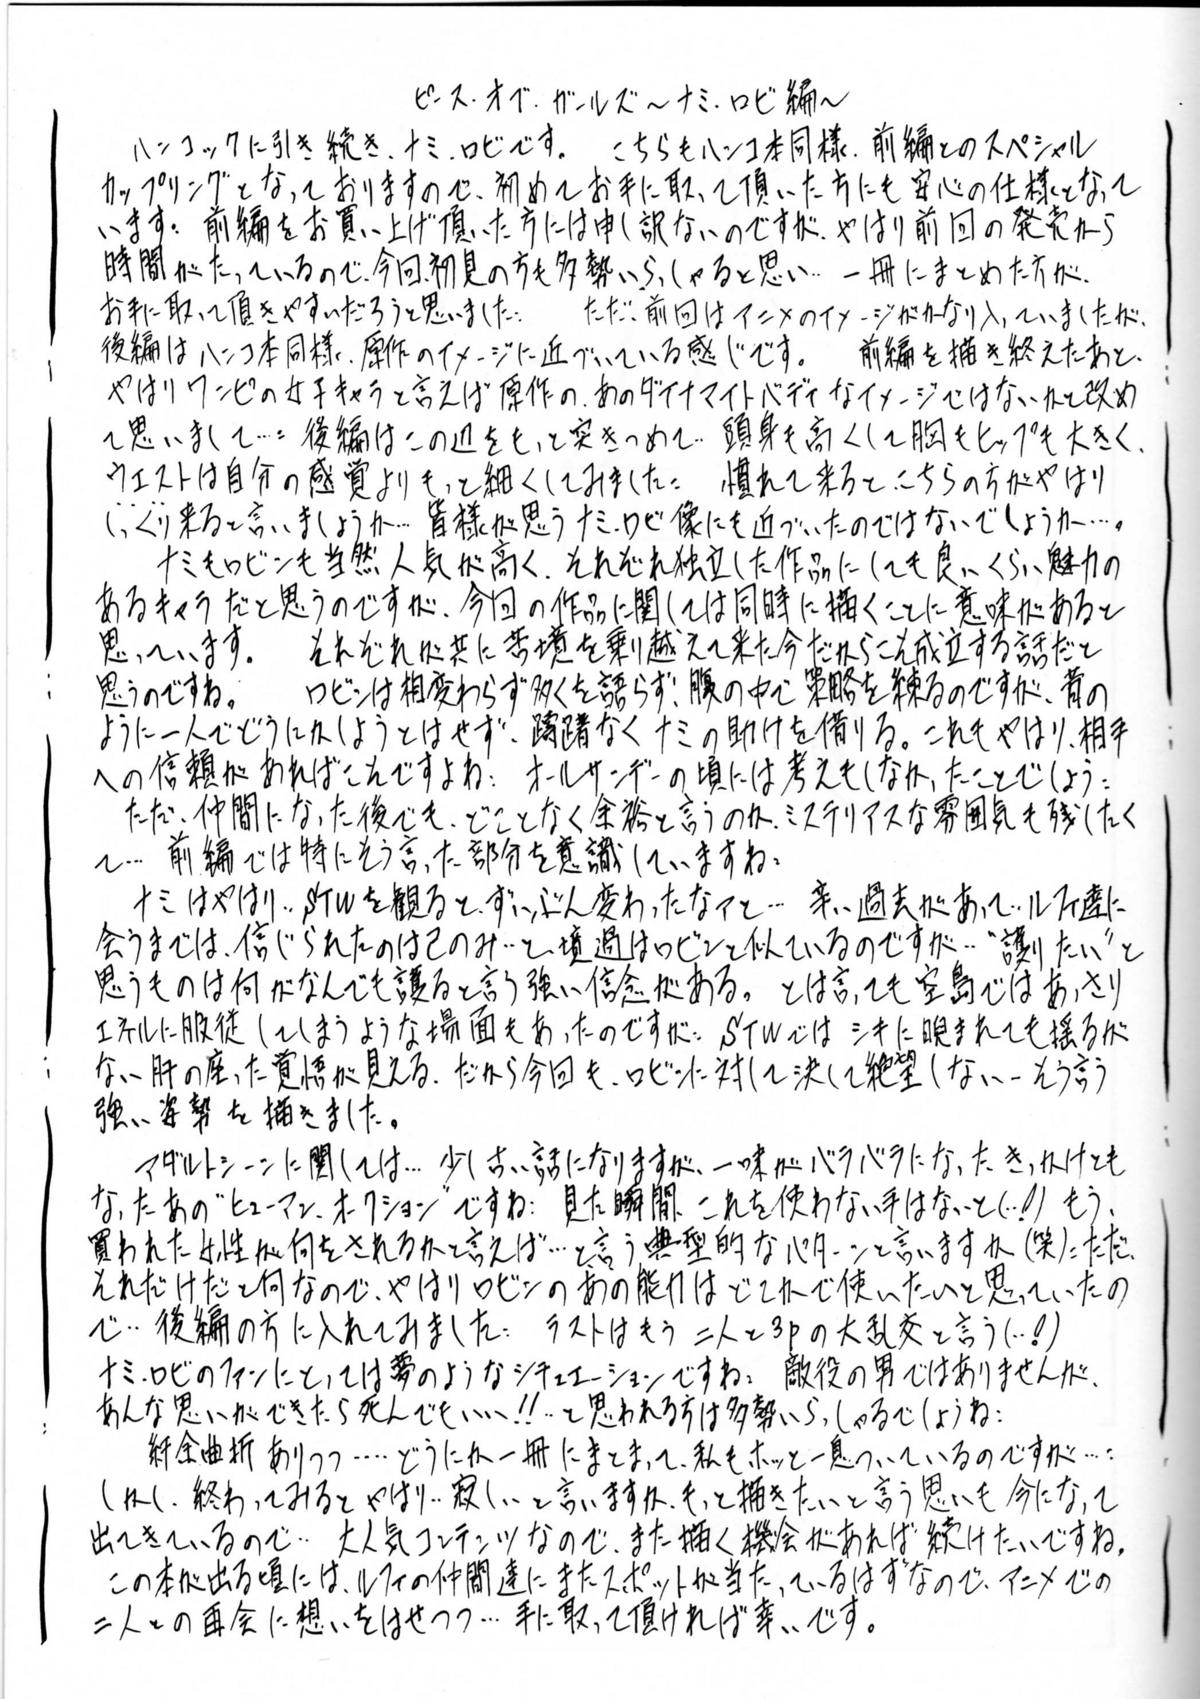 ピース・オブ・ガールズ～ナミ・ロビ編～
ハンコックに引き続き、ナミ・ロビです。 こちらもハンコ本同様、前編とのスペシャル
カップリングとなっておりますので、初めてお手に取って頂いた方にも安心の仕様となって
います。前編をお買い上げ頂いた方には申し訳ないのですが、やはり前回の発売から
時間がたっているので、今回、初見の方も多勢いらっしゃると思い… 一冊にまとめた方が、
お手に取って頂きやすいだろうと思いました: ただ、前回はアニメのイメージがかなり入っていましたが、
後編はハンコ本同様、原作のイメージに近づいている感じです。 前編を描き終えたあと、
やはりワンピの女子キャラと言えば原作の、あのダイナマイトバディなイメージではないかと改め
て思いまして…: 後編はこの辺をもっと突きつめて… 頭身も高くして胸もヒップも大きく、
ウエストは自分の感覚よりもっと細くしてみました: 慣れて来ると、こちらの方がやはり
しっくり来ると言いましょうか… 皆様が思うナミ・ロビ像にも近づいたのではないでしょうか…。
ナミもロビンも当然人気が高く、それぞれ独立した作品にしても良いくらい魅力の
あるキャラだと思うのですが、今回の作品に関しては同時に描くことに意味があると
思っています。 それぞれが共に苦境を乗り越えて来た今だからこそ成立する話だと
思うのですね。 ロビンは相変わらず多くを語らず、腹の中で策略を練るのですが、昔の
ように一人でどうにかしようとはせず、躊躇なくナミの助けを借りる。これもやはり、相手
への信頼があればこそですよね: オールサンデーの頃には考えもしなかったことでしょう:
ただ、仲間になった後でも、どことなく余裕と言うのか、ミステリアスな雰囲気も残したく
て… 前編では特にそう言った部分を意識していますね:
ナミはやはり‥STWを観ると、ずいぶん変わったなァと… 辛い過去があって‥ルフィ達に
会うまでは、信じられたのは己のみ‥と、境遇はロビンと似ているのですが‥“護りたい”と
思うものは何がなんでも護ると言う強い信念がある。とは言っても空島ではあっさり
エネルに服従してしまうような場面もあったのですが: STWではシキに睨まれても揺るが
ない肝の座った覚悟が見える、だから今回も、ロビンに対して決して絶望しない―そう言う
強い姿勢を描きました。
アダルトシーンに関しては… 少し古い話になりますが、一味がバラバラになったきっかけとも
なったあの“ヒューマン、オークション”ですね: 見た瞬間、これを使わない手はないと(…!) もう、
買われた女性が何をされるかと言えば…と言う典型的なパターンと言いますか(笑): ただ、
それだけだと何なので、やはりロビンのあの能力はどこかで使いたいと思っていたの
で‥後編の方に入れてみました: ラストはもう二人と3Pの大乱交と言う(…!)
ナミ・ロビのファンにとっては夢のようなシチュエーションですね: 敵役の男ではありませんが、
あんな思いができたら死んでもいい!!‥と思われる方は多勢いらっしゃるでしょうね:
紆余曲折ありつつ‥‥どうにか一冊にまとまって、私もホッと一息ついているのですが…:
しかし、終わってみるとやはり‥寂しいと言いますか、もっと描きたいと言う思いも今になって
出てきているので… 大人気コンテンツなので、また描く機会があれば続けたいですね。
この本が出る頃には、ルフィの仲間達にまたスポットが当たっているはずなので、アニメでの
二人との再会に想いをはせつつ… 手に取って頂ければ幸いです。